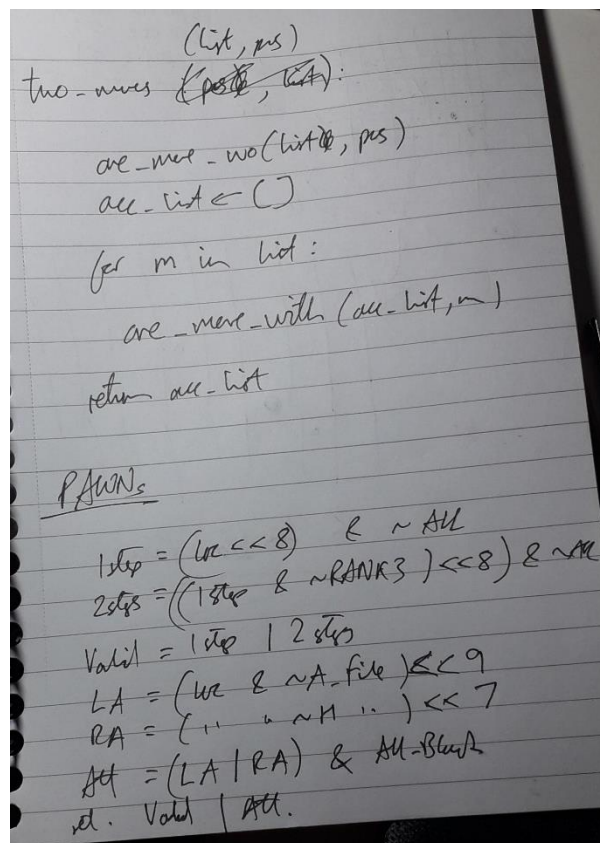 (list, pos)
two_moves (pos, list):
one_move_wo(list, pos)
acc_list ← []
for m in list:
one_move_with (acc_list, m)
return acc_list
PAWNs
1step = (loc << 8) & ~All
2steps = ((1step & ~RANK3) << 8) & ~All
Valid = 1step | 2steps
LA = (loc & ~A_file) << 9
RA = ( " " ~H " ) << 7
Att = (LA | RA) & All_Black
ret. Valid | Att.